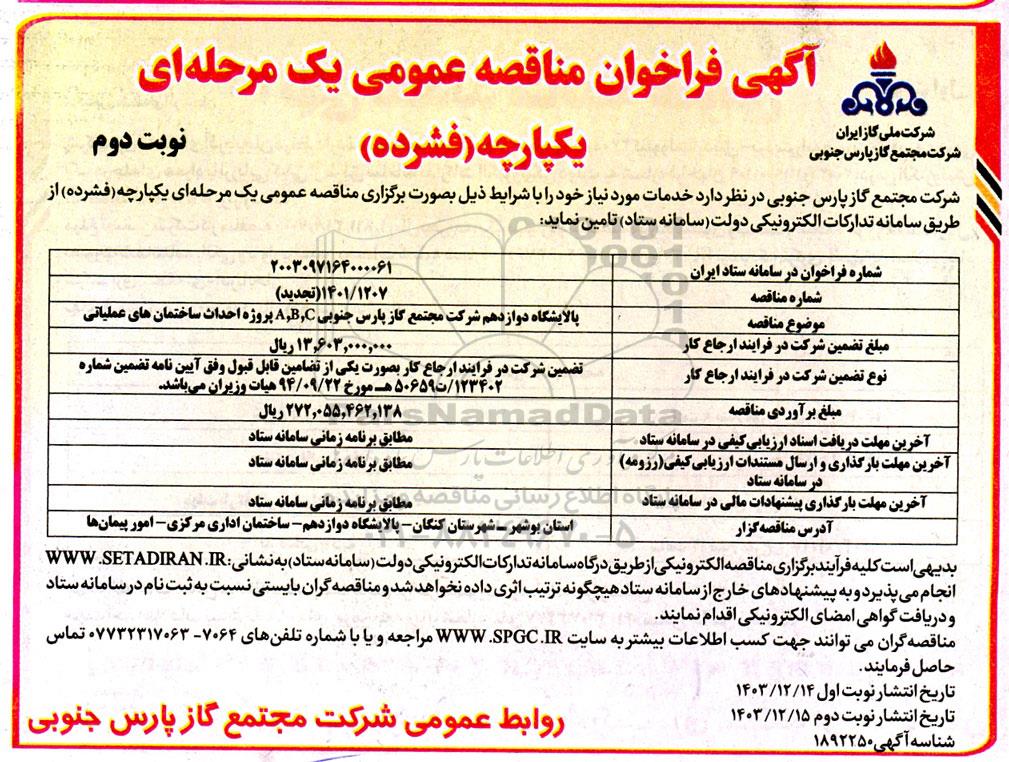 آگهی فراخوان مناقصه عمومی یک مرحله‌ای
یکپارچه(فشرده)
نوبت دوم
شرکت ملی گاز ایران
شرکت مجتمع گاز پارس جنوبی
شرکت مجتمع گاز پارس جنوبی در نظر دارد خدمات مورد نیاز خود را با شرایط ذیل بصورت برگزاری مناقصه عمومی یک مرحله‌ای یکپارچه(فشرده) از
طریق سامانه تدارکات الکترونیکی دولت(سامانه ستاد) تامین نماید:
شماره فراخوان در سامانه ستاد ایران ۲۰۰۳۰۹۷۱۶۴۰۰۰۰۶۱
شماره مناقصه ۱۴۰۱/۱۲۰۷(تجدید)
موضوع مناقصه پالایشگاه دوازدهم شرکت مجتمع گاز پارس جنوبی A,B,C پروژه احداث ساختمان های عملیاتی
مبلغ تضمین شرکت در فرایند ارجاع کار ۱۳,۶۰۳,۰۰۰,۰۰۰ ریال
نوع تضمین شرکت در فرایند ارجاع کار تضمین شرکت در فرایند ارجاع کار بصورت یکی از تضامین قابل قبول وفق آیین نامه تضمین شماره
۱۲۳۴۰۲/ت۵۰۶۵۹ هـ مورخ ۹۴/۰۹/۲۲ هیات وزیران می‌باشد.
مبلغ برآوردی مناقصه ۲۷۲,۰۵۵,۴۶۲,۱۳۸ ریال
آخرین مهلت دریافت اسناد ارزیابی‌کیفی در سامانه ستاد مطابق برنامه زمانی سامانه ستاد
آخرین مهلت بارگذاری و ارسال مستندات ارزیابی‌کیفی(رزومه) مطابق برنامه زمانی سامانه ستاد
در سامانه ستاد
آخرین مهلت بارگذاری پیشنهادات مالی در سامانه ستاد مطابق برنامه زمانی سامانه ستاد
آدرس مناقصه‌گزار استان بوشهر – شهرستان کنگان– پالایشگاه دوازدهم– ساختمان اداری مرکزی– امور پیمان‌ها
ParsNamadData
پایگاه اطلاع رسانی مناقصه و مزایده
۰۲۱-۸۸۳۴۹۶۷۰-۵
بدیهی است کلیه فرآیند برگزاری مناقصه الکترونیکی از طریق درگاه سامانه تدارکات الکترونیکی دولت(سامانه ستاد) به نشانی: WWW.SETADIRAN.IR
انجام می‌پذیرد و به پیشنهادهای خارج از سامانه ستاد هیچگونه ترتیب اثری داده نخواهد شد و مناقصه گران بایستی نسبت به ثبت نام در سامانه ستاد
و دریافت گواهی امضای الکترونیکی اقدام نمایند.
مناقصه‌گران می توانند جهت کسب اطلاعات بیشتر به سایت WWW.SPGC.IR مراجعه و یا با شماره تلفن‌های ۷۰۶۴- ۰۷۷۳۲۳۱۷۰۶۳ تماس
حاصل فرمایند.
تاریخ انتشار نوبت اول ۱۴۰۳/۱۲/۱۴
تاریخ انتشار نوبت دوم ۱۴۰۳/۱۲/۱۵
شناسه آگهی ۱۸۹۲۲۵۰
روابط عمومی شرکت مجتمع گاز پارس جنوبی